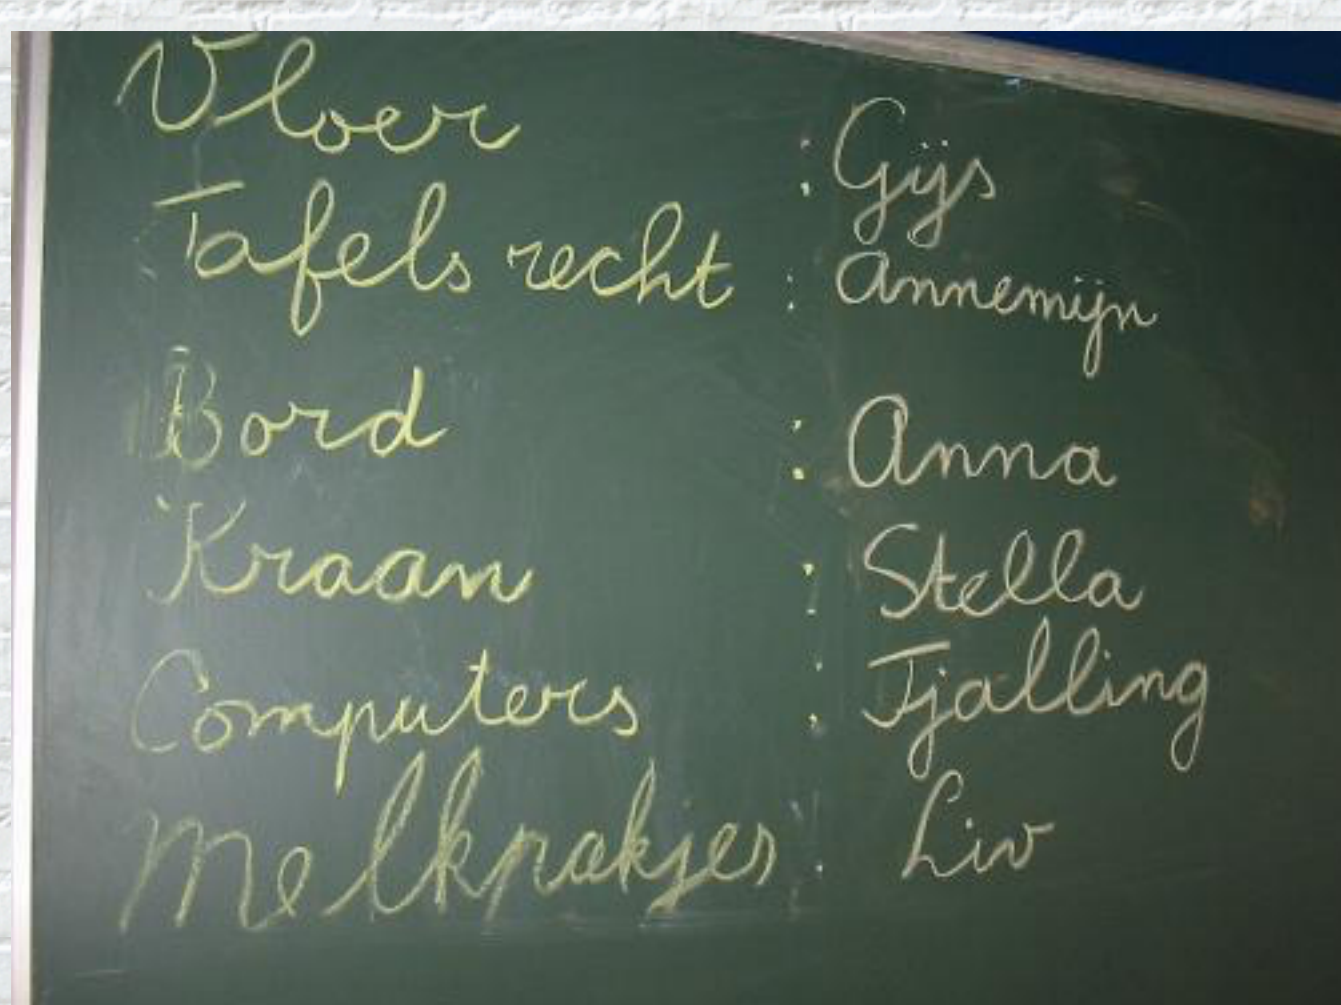 Vloer : Gijs
Tafels recht : Annemijn
Bord : Anna
Kraan : Stella
Computers : Tjalling
Melkpakjes : Liv